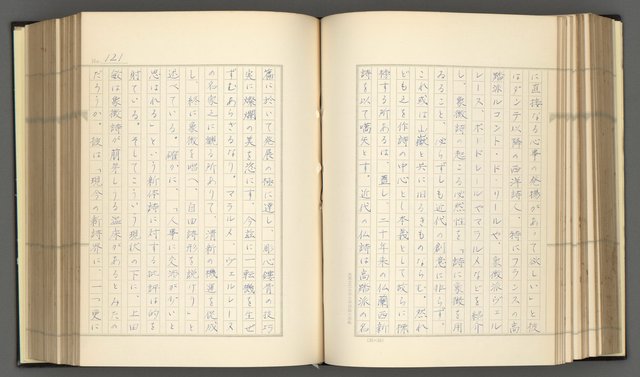 に直接なる心事の発揚があって欲しい」と彼
はダンテ以降の西洋詩史、特にフランスの高
踏派ルコント・ド・リールや、象徴派ヴェル
レース、ボードレールやマラルメなどを紹介
し、象徴詩の起こる必然性を「詩に象徴を用
ゐること、必らずしも近代の創意に非らず、
これ或は山嶽と共に旧るきものならむ。然れ
ども之を作詩の中心とし本義として故らに標
榜する所あるは、蓋し二十年来の仏蘭西新
詩を以て嚆矢とす。近代の仏詩は高踏派の名
No. 121
篇に於いて発展の極に達し、彫心鏤骨の技巧
実に燦爛の美を恣にす、今茲に一転機を生ぜ
ずむあらざるなり。マラルメ、ヴェルレーヌ
の名家之に観る所ありて、清新の機運を促成
し、終に象徴を唱へ、自由詩形を説けり」と
述べている。確かに、「人事に交渉が少いと
思はれる」という新体詩に対する批評は的を
射ている。そしてこういう現状の下に、上田
敏は象徴詩が萌芽しうる温床があるとみたの
だろうか。彼は「現今の新詩界に一つ更に